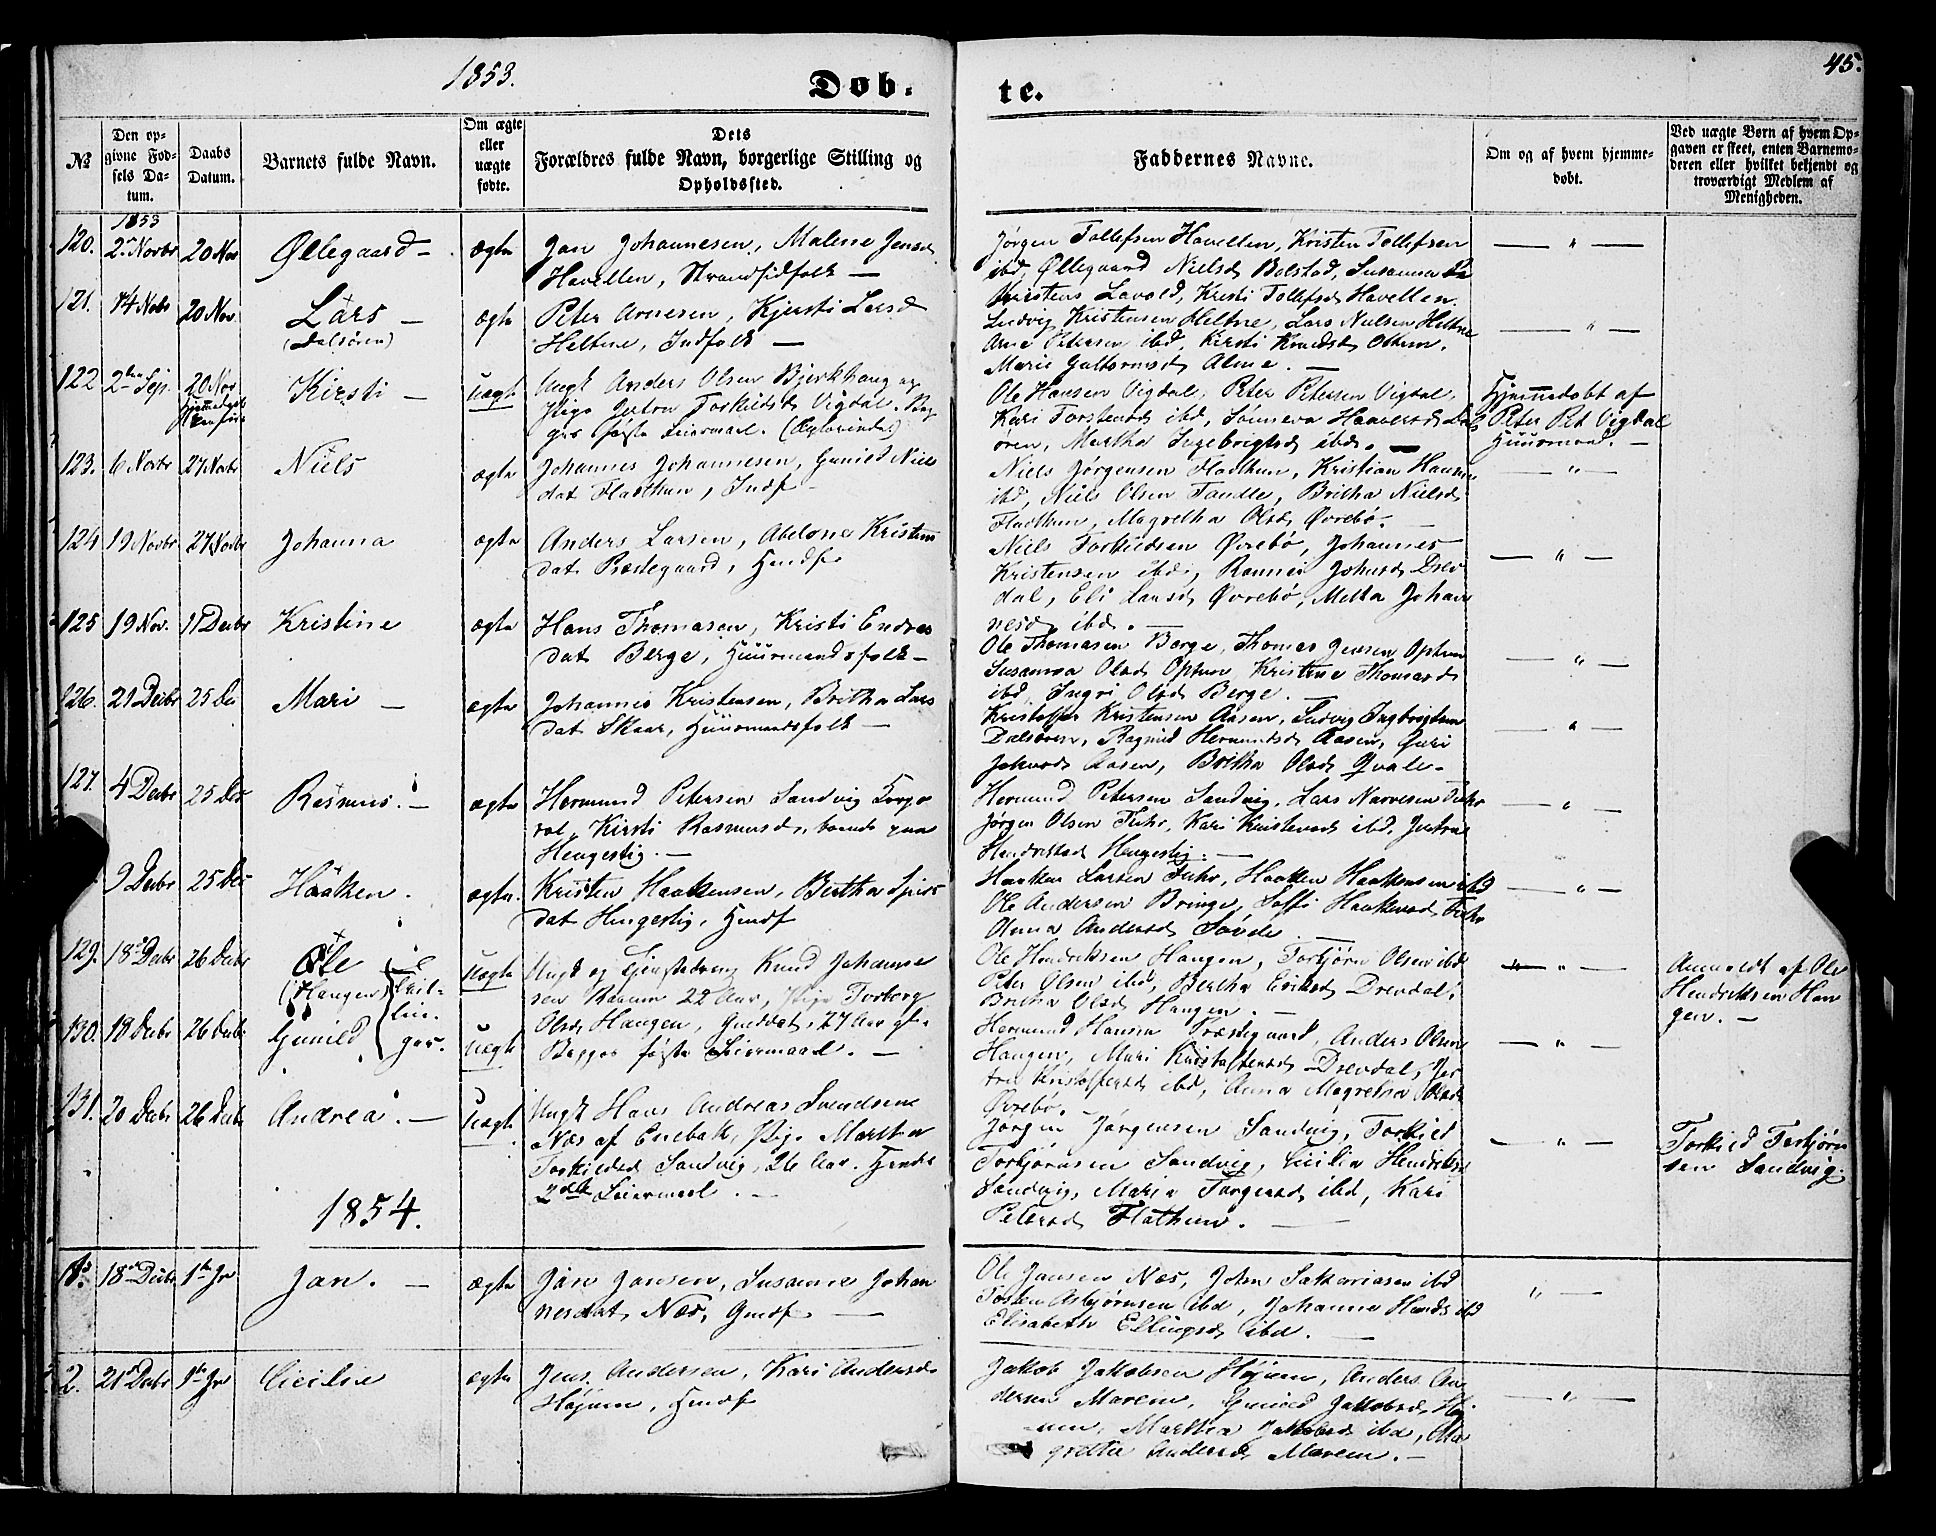 1853.
Døb-
te.
45.
No
Den opgivne Fødsels Datum.
Daabs Datum.
Barnets fulde Navn.
Om ægte eller uægte fødte.
Dets
Forældres fulde Navn, borgerlige Stilling og
Opholdssted.
Faddernes Navne.
Om og af hvem hjemmedøbt.
Ved uægte Børn af hvem Opgaven er skeet, enten Barnemoderen eller hvilket bekjendt og troværdigt Medlem af Menigheden.
1853
120. 2 Novbr 20 Nov Øllegaard – ægte Jan Johannesen, Malene Jensd
Havellen, Strandsidfolk —
Jørgen Tollefsen Havellen, Kristen Tollefsen
ibd, Øllegaard Nielsd Bolstad, Susanna
Kristens Lavold, Kristi Tollefsd Havellen.
121. 14 Nobr 20 Nov. Lars – ægte Peter Arnesen, Kjersti Larsd
(Dalsøren)
Heltne, Indfolk —
Ludvig Kristensen Heltne, Lars Nielsen Heltne
Arne Petersen ibd, Kirsti Knudsd Ottum.
Marie Guttormsd Alme. –
122 2den Sep. 20 Nov Kirsti – uægt Ungk Anders Olsen Bjørkhaug og
Pige Torkildsd Vigdal. Beg-
ges første Leiermaal.
Ole Hansen Vigdal, Peter Petersen Vigdal,
Kari Torstensd ibd, Sønneva Haavorsd Dals
øren, Martha Ingebrigtsd ibd. –
Hjemmedøbt af
Peter Pet Vigdal
Huusmand. –
123. 6 Novbr 27 Novbr Niels ægte Johannes Johannesen, Gunild Niels
dat Fladthun, Indf
Niels Jørgensen Fladhun, Kristian Hansen
ibd, Niels Olsen Tandle, Britha Nielsd
Fladthun, Magretha Olsd Øvrebø. –
124 19 Novbr 27 Novbr Johanna ægte Anders Larsen, Abelone Kristens
dat Prestegaard, Huusf
Niels Torkildsen Øvrebø, Johannes
Kristensen ibd, Rannei Johnsd Drev-
dal, Eli Larsd Øvrebø, Metta Johan
nesd ibd. –
125 19 Nov. 11 Decbr Kristine ægte Hans Thomasen, Kristi Endres
dat Berge, Huusmandsfolk –
Ole Thomasen Berge, Thomas Jensen Optun
Susanna Olsd Optun, Kristine Thomasd
ibd, Ingri Olsd Berge. –
126. 21 Decbr 25 De Mari – ægte Johannes Kristensen, Britha Lars
dat Skaar, Huusmandsfolk –
Kristoffer Kristensen Aasen, Ludvig Ingbrigtsen
Dalsøren, Ragnild Hermundsd Aasen, Guri
Johnsd Aasen, Britha Olsd Qvale.
127. 4 Decbr 25 Dec Rasmus. – ægte Hermund Petersen Sandvig Korpo
ral, Kirsti Rasmusd, boende paa
Hengestig. –
Hermund Petersen Sandvig, Lars Narvesen Fuhr
Jørgen Olsen Fuhr, Kari Kristensd ibd,
Hendrikdat Hengestig. –
9 Decbr 25 Dec Haaken. ægte. Kristen Haakensen, Bertha Sjurs
dat Hengestig, Huusf
Haaken Larsen Fuhr, Haaken Haakensen ibd
Ole Andersen Bringe, Saffi Haakensd Fuhr
Anna Andersd Søvde –
129. 18 Decbr 26 Decbr Ole uægte Ungk og Gjenstedreng Knud Johanne
(Haugen) Tvil-
lin-
ger.
sen Raaum 22 Aar, Pige Torborg
Ole Hendriksen Haugen, Torbjørn Olsen ibd
Peter Olsen ibd, Bertha Eriksd Drevdal,
Britha Olsd Haugen. –
Anmeldt af Ole
Hendriksen Hau
gen. –
130. 18 Decbr 26 Decbr Gunild uægte Olsd Haugen, Gaarddat, 27 Aar gl.
Begges første Leiermaal. –
Hermund Hansen Præstegaard, Anders Olsen
Haugen, Mari Kristoffersd Drevdal, Jer
tru Kristoffersd ibd, Anna Magretha Olsd
Øvrebø.
131. 20 Decbr 26 Decbr Andrea. – uægte Ungk Hans Andreas Svendsen
Næs af Enebak, Pige Martha
Torkildsd Sandvig, 26 Aar. Hendes
2det Leiermaal. –
Jørgen Jørgensen Sandvig, Torkild
Torbjørnsen Sandvig, Cicilia Hendriksd
Sandvig, Maria Torgersd ibd, Kari
Petersd Flathun. –
Torkild Torbjørn
sen Sandvig.
1854.
1. 18 Decbr 1ste Jan Jan. – ægte Jan Jansen, Susanne Johan
nesdat Næs, Gmdf —
Ole Jansen Næs, John Sakariasen ibd
Tosten Asbjørnsen ibd, Johanne ibd
Elisabeth Ellingsd ibd. –
2. 21 Decbr 1ste Jan Cicilie ægte Jens Andersen, Kari Andersd
Højum, Huusf
Jakob Jakobsen Højum, Anders An
dersen Marem, Gunild Jakobsd, Hø-
um, Martha Jakobsd ibd, Ma
grethe Andersd Marem. –